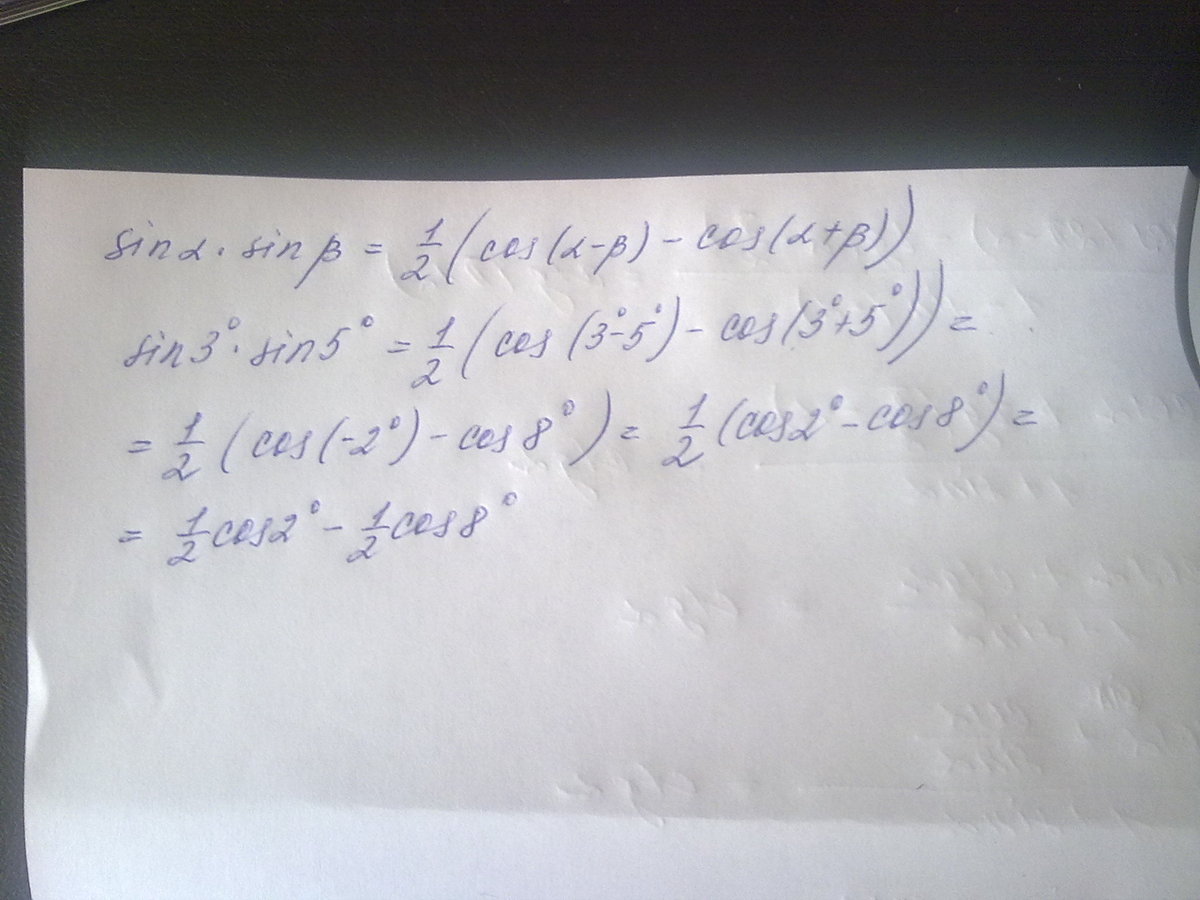 sin α · sin β = 1/2 (cos (α-β) - cos (α+β))
sin 3° · sin 5° = 1/2 (cos (3°-5°) - cos (3°+5°)) =
= 1/2 (cos (-2°) - cos 8°) = 1/2 (cos 2° - cos 8°) =
= 1/2 cos 2° - 1/2 cos 8°